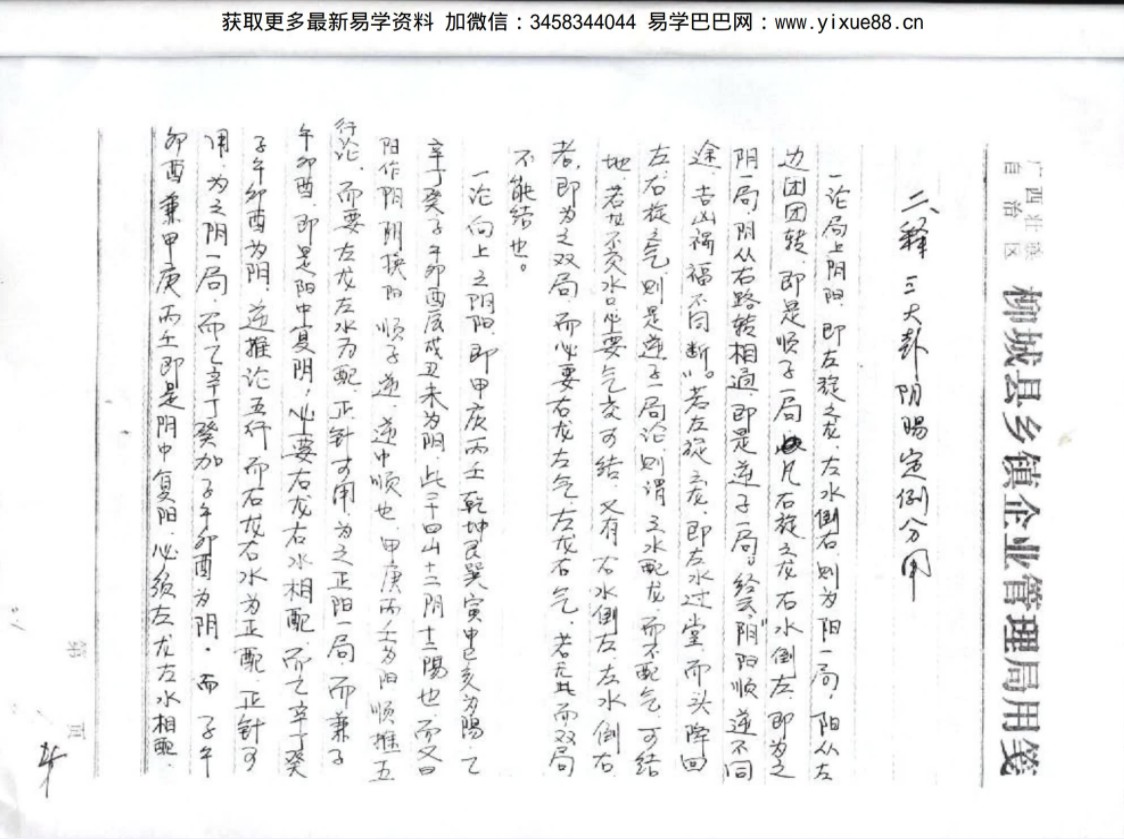 获取更多最新易学资料 加微信：3458344044 易学巴巴网：www.yixue88.cn
广西壮族
自治区
柳城县乡镇企业管理局用笺
二、释三大卦阴陽定例分用
一论局上阴阳，即左旋之龙，左水倒右，则为阳一局，阳从左
边团团转，即是顺子一局，凡右旋之龙右水倒左，即为之
阴一局，阴从右路转相通，即是逆子一局，经云，"阴阳顺逆不同
途，吉凶祸福不同断"。若左旋之龙，即左水过堂，而头降回
左，右旋之气，则是逆子一局论，则谓之水配龙，而不配气，可结
地，若左右交水口，必要气交可结，又有右水倒左，左水倒右
者，即为之双局，而必要右龙左气，左龙右气，若无此而双局
不能结也。
一论向上之阴阳，即甲庚丙壬乾坤艮巽寅申巳亥为陽，乙
辛丁癸子午卯酉辰戌丑未为阴，此二十四山十二阴十二陽也，而又曰
阳作阴，阴换阳，顺子逆，逆中顺也，甲庚丙壬为阳顺推五
行论，而要左龙左水为配，正针可用为之正阳一局，而兼子
午卯酉，即是阳中复阴，必要右龙右水相配，而乙辛丁癸
子午卯酉为阴，逆推论五行，而右龙右水为正配，正针可
用，为之阴一局，而乙辛丁癸加子午卯酉为阴，而子午
卯酉兼甲庚丙壬即是阴中复阳，必须左龙左水相配，
第 页